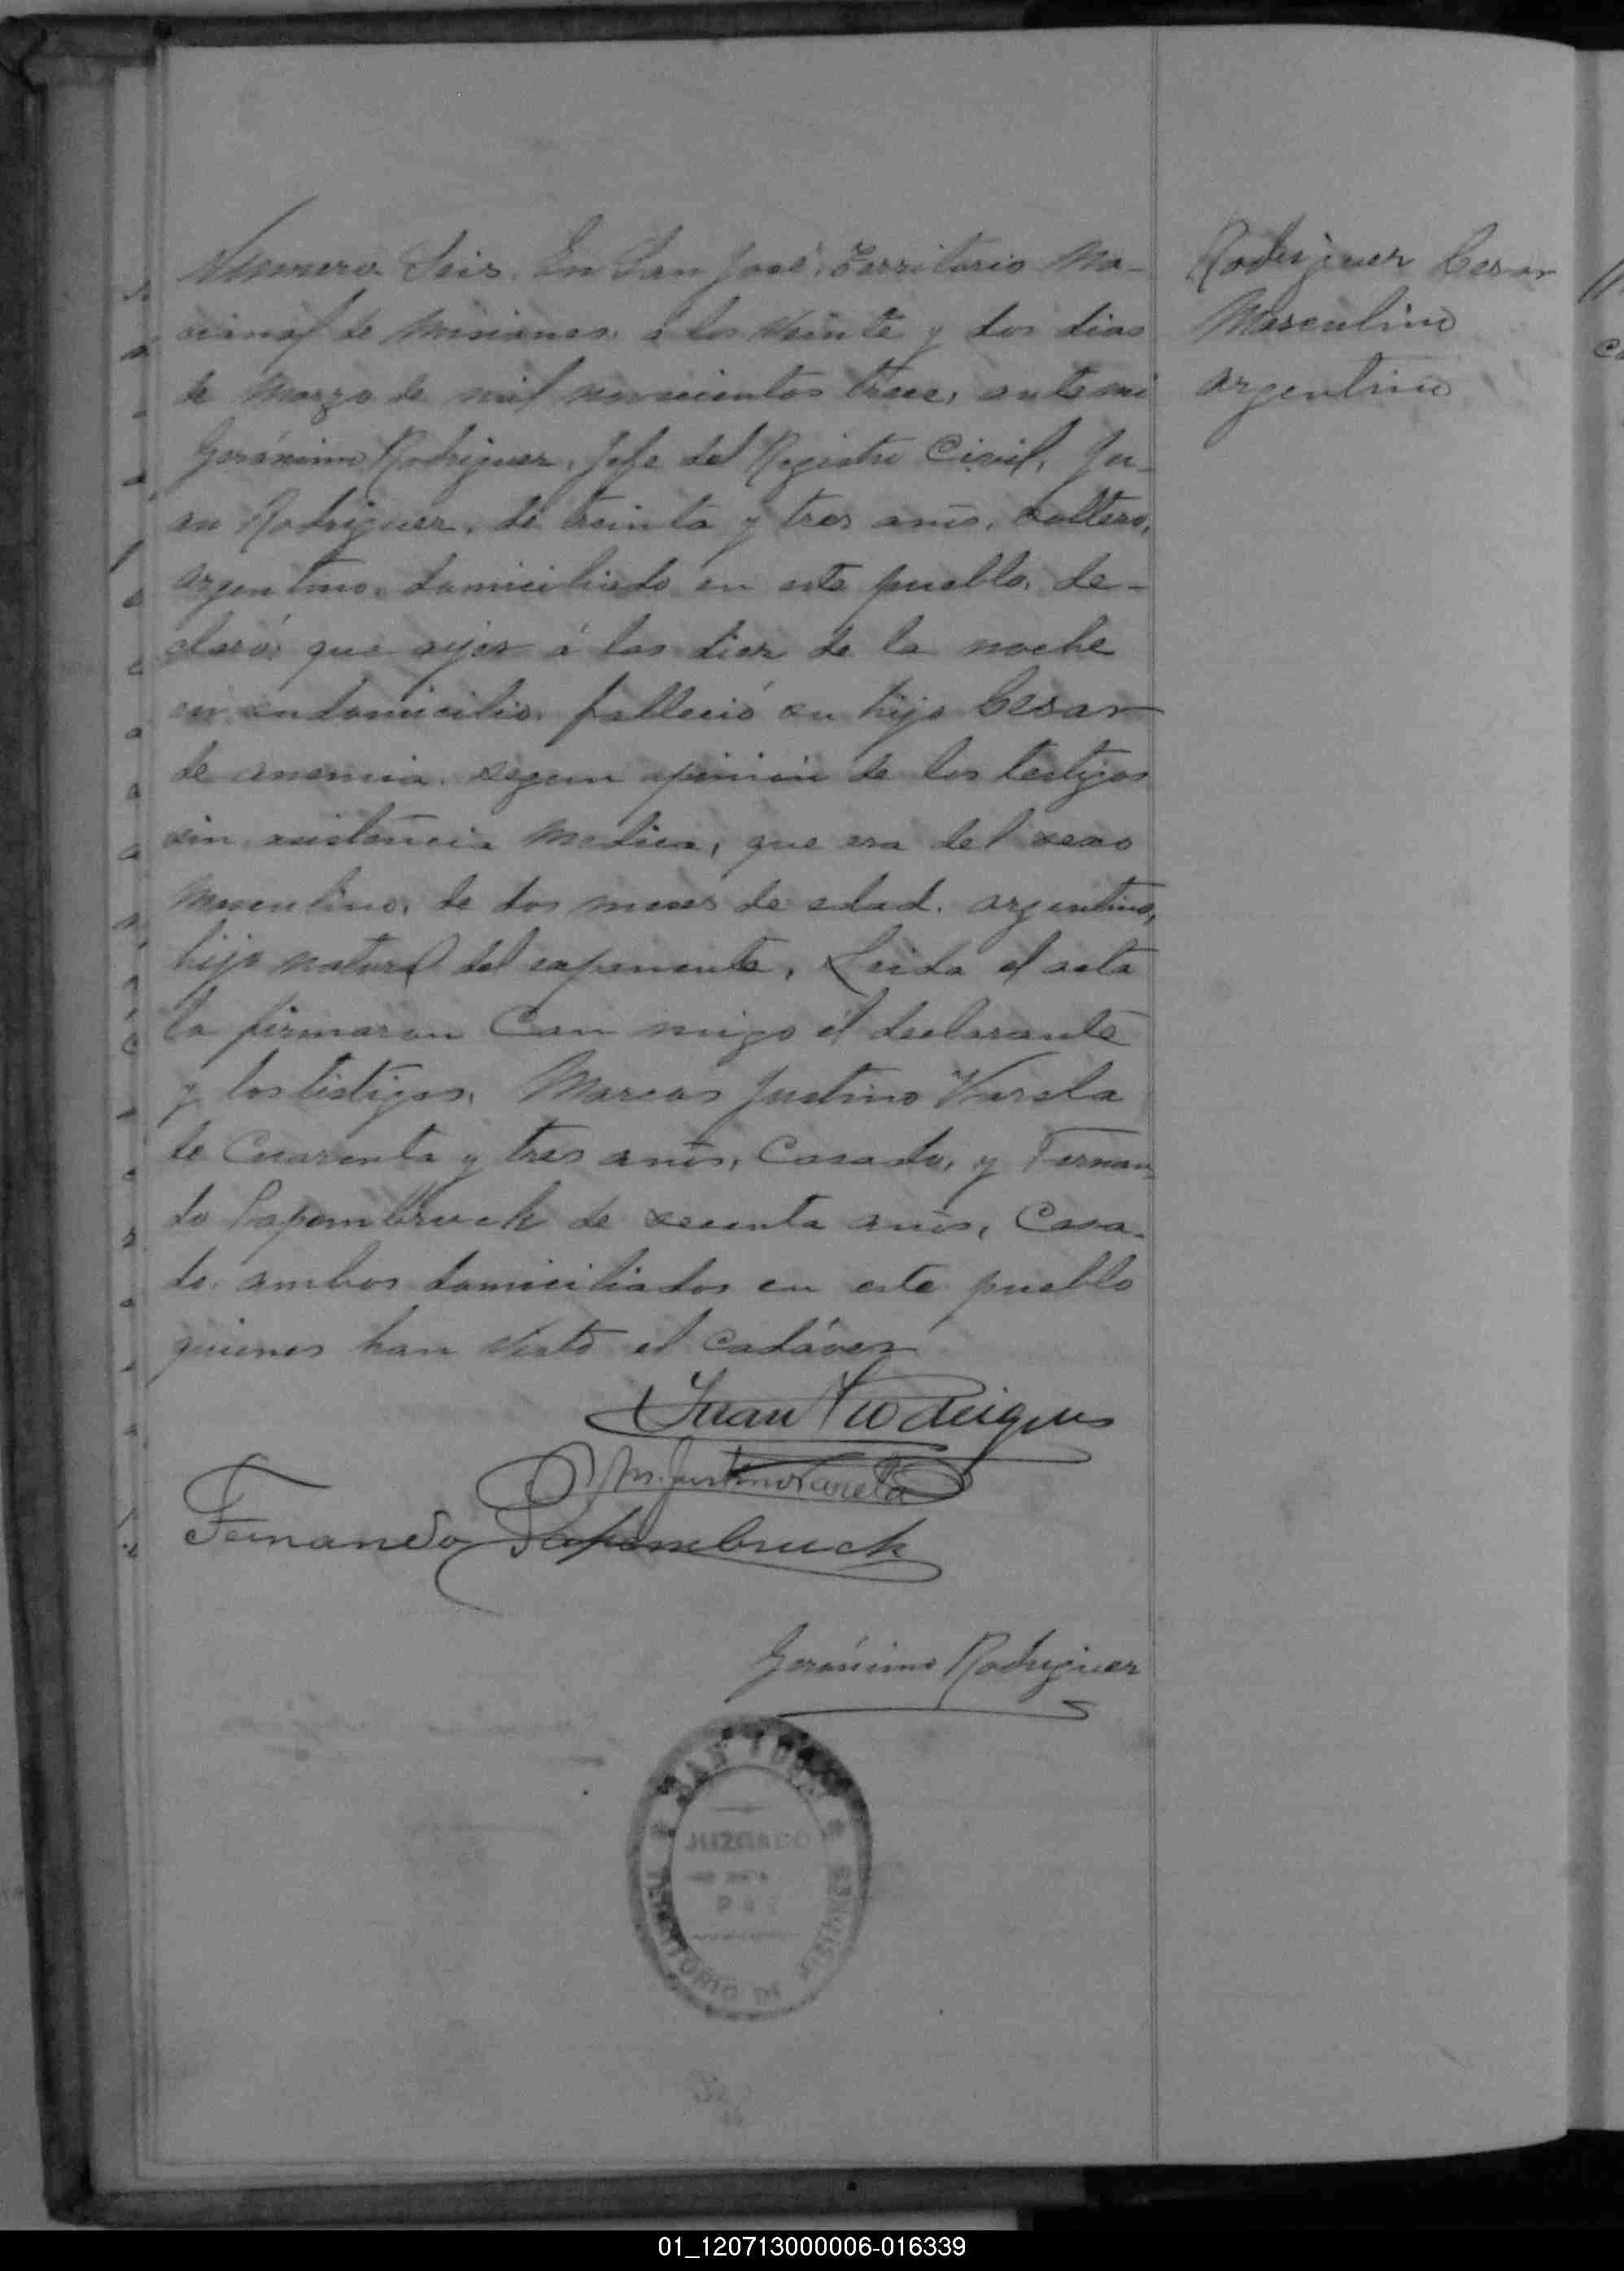 Numero Seis. En San José, Territorio Na-
cional de Misiones, a los veinte y dos dias
de Marzo de mil novecientos trece, ante mi
Gerónimo Rodriguez, Jefe del Registro Civil, Ju-
an Rodriguez, de treinta y tres anos, soltero,
argentino, domiciliado en este pueblo, de-
claró: que ayer á las diez de la noche
en su domicilio, falleció su hijo Cesar
de anemia, segun opinión de los testigos
sin asistencia medica, que era del sexo
masculino, de dos meses de edad, argentino,
hijo natural del exponente, Leida el acta
la firmaron Con migo el declarante
y los testigos, Marcos Justino Varela
de Cuarenta y tres anos, Casado, y Fernan-
do Papembruck de secenta anos, Casa-
do, ambos domiciliados en este pueblo
quienes han visto el Cadáver
Juan Rodrigues
M. Justino Varela
Fernando Papembruck
Gerónimo Rodriguez
SAN JOSE
JUZGADO
DE
PAZ
TERRITORIO DE MISIONES
Rodriguez Cesar
Masculino
argentino
01_120713000006-016339